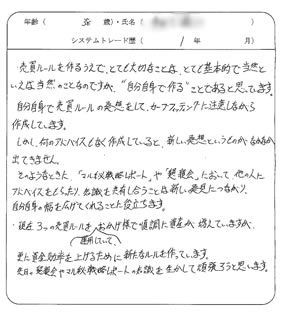 年齢( 歳)・氏名( )
システムトレード歴( 1年 月)
売買ルールを作るうえで、とても大切なことは、とても基本的で当然と
いえば当然のことなのですが、"自分自身で作る"ことであると思ってます。
自分自身で売買ルールの発想をして、カーブフィッティングに注意しながら
作成しています。
しかし、何のアドバイスもなく作成していると、新しい発想というものがなかなか
出てきません。
そのようなとき、「マル秘戦略レポート」や「懇親会」において、他の人に
アドバイスをもらったり、知識を共有し合うことは新しい発想につながり、
自分自身の幅を広げてくれることに役立ちます。
現在、3つの売買ルールを おかげ様で順調に資産が増えていますが、
運用していて、
更に資金効率を上げるために新たなルールを作っています。
先日の懇親会やマル秘戦略レポートの知識を生かして頑張ろうと思います。